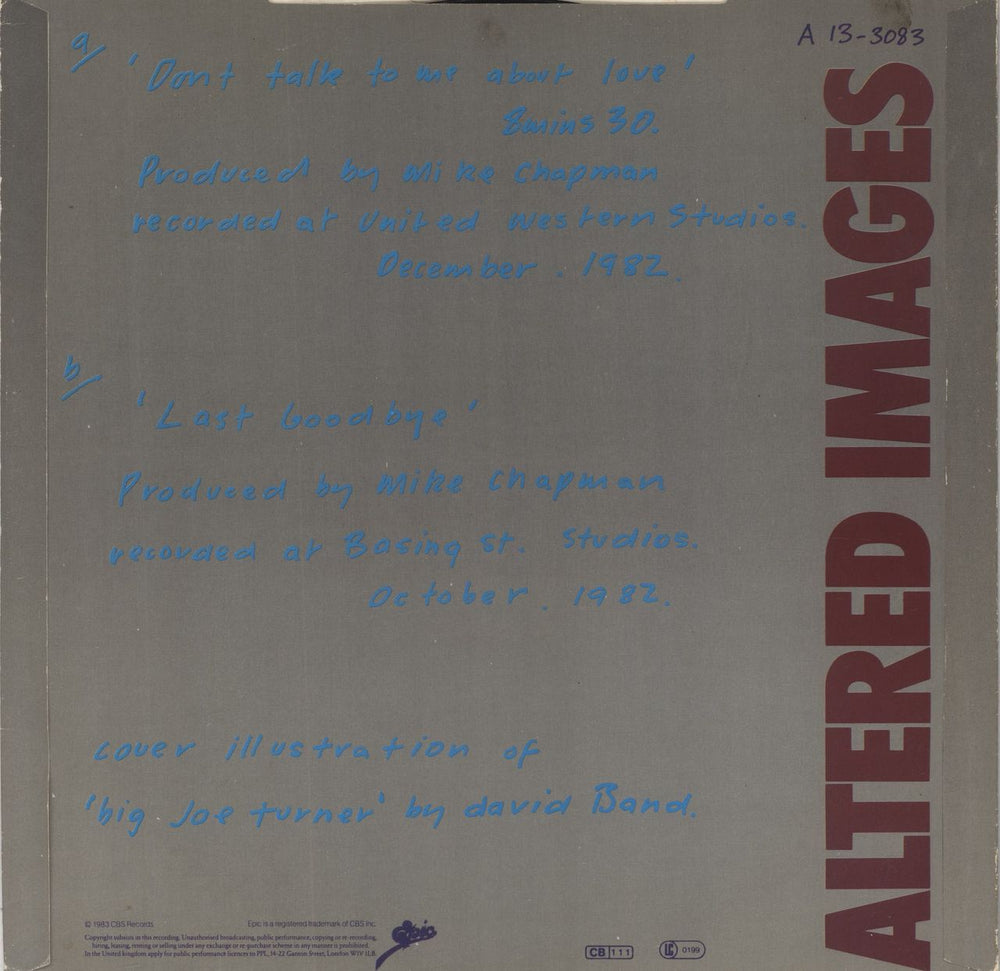 A 13-3083
a/ 'Dont talk to me about love'
8mins 30.
Produced by Mike Chapman
recorded at United Western Studios.
December . 1982.
b/
'Last Goodbye'
Produced by Mike Chapman
recorded at Basing St. Studios.
October . 1982.
cover illustration of
'big Joe turner' by david Band.
ALTERED IMAGES
© 1983 CBS Records Epic is a registered trademark of CBS Inc.
Copyright subsists in this recording. Unauthorised broadcasting, public performance, copying or re-recording,
hiring, loaning, renting or selling under any exchange or re-purchase scheme in any manner is prohibited.
In the United Kingdom apply for public performance licences to PPL, 14-22 Ganton Street, London W1V 1LB.
Epic
CB 111
LC 0199